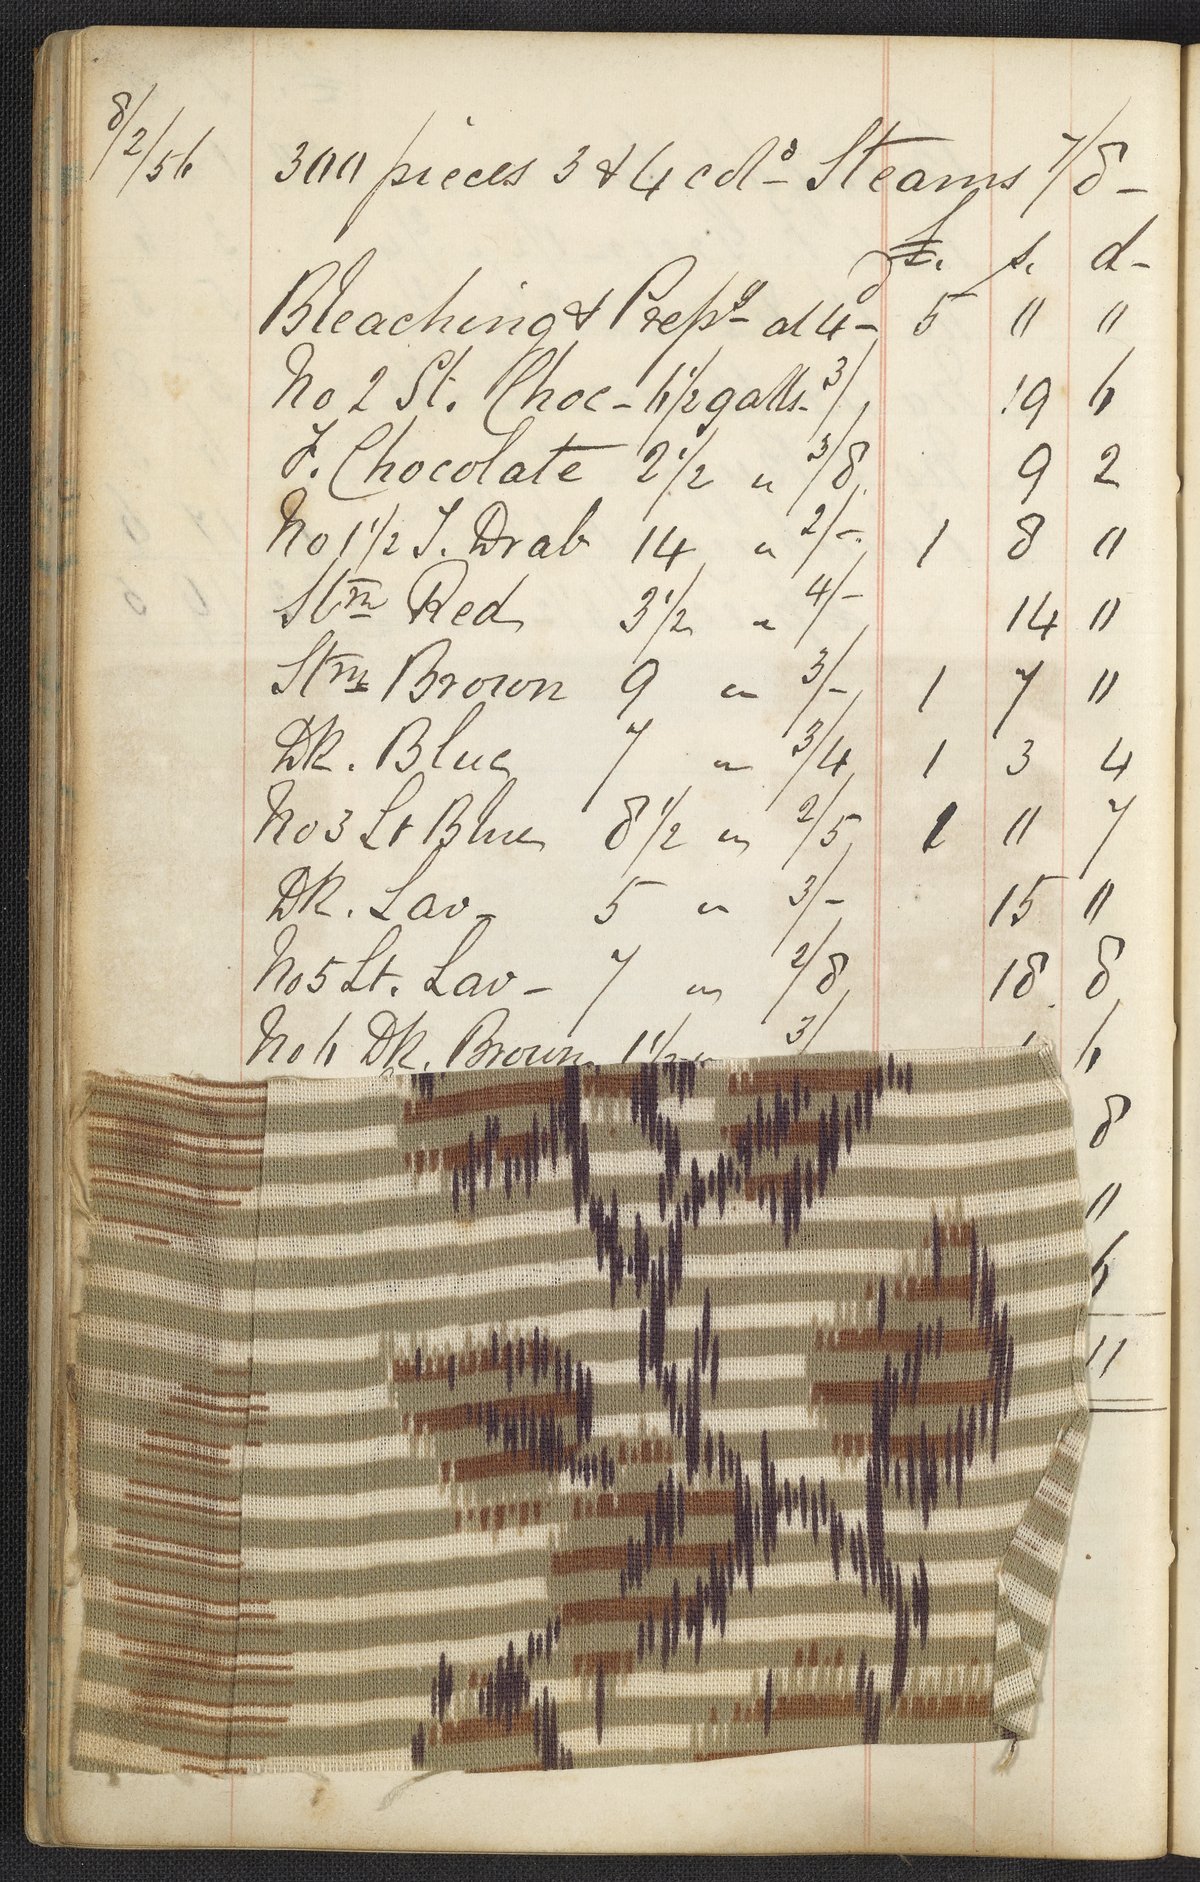 8/2/56 300 pieces 3 & 4 cols Steams 7/8 -
£. s. d -
Bleaching & Prepg - at 4d - 5 " "
No 2 St. Choc - 6 1/2 galls. 3/ 19 6
F. Chocolate 2 1/2 " 3/8 9 2
No 1 1/2 F. Drab 14 " 2/- 1 8 "
Stm Red 3 1/2 " 4/- 14 "
Stm Brown 9 " 3/- 1 7 "
Dk. Blue 7 " 3/4 1 3 4
No 3 Lt Blue 8 1/2 " 2/5 1 " 7
Dk. Lav - 5 " 3/- 15 "
No 5 Lt. Lav - 7 " 2/8 18 8
No 6 Dk. Brown 1 1/2 " 3/ 6
8
"
6
11